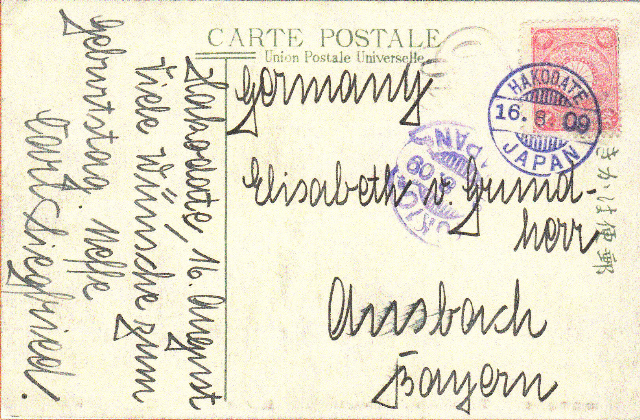 CARTE POSTALE
Union Postale Universelle
HAKODATE
16. 8. 09
JAPAN
きかは便郵
Germany
Elisabeth v. Grund-
herr
Ansbach
Bayern
Hakodate, 16. August
Viele Wünsche zum
Geburtstag. Neffe
Carl Siegfried.